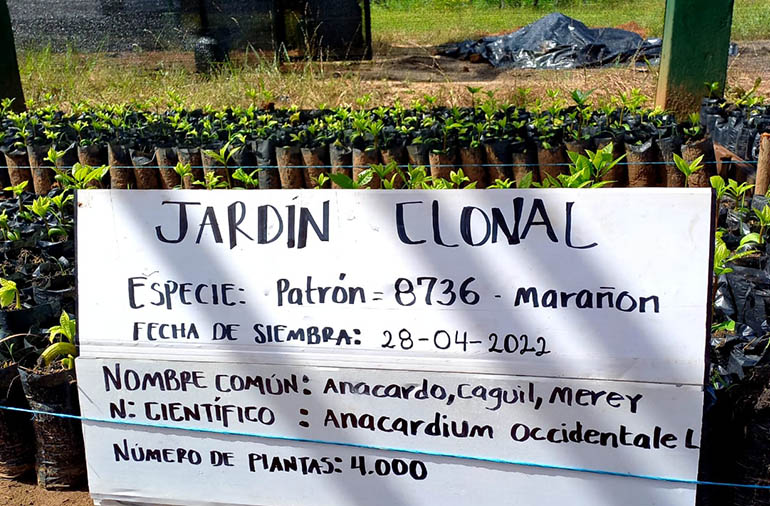 JARDÍN CLONAL
ESPECIE: Patrón = 8736 - Marañon
FECHA DE SIEMBRA: 28-04-2022
NOMBRE COMÚN: Anacardo, Caguil, Merey
N: CIENTÍFICO : Anacardium Occidentale L
NÚMERO DE PLANTAS: 4.000